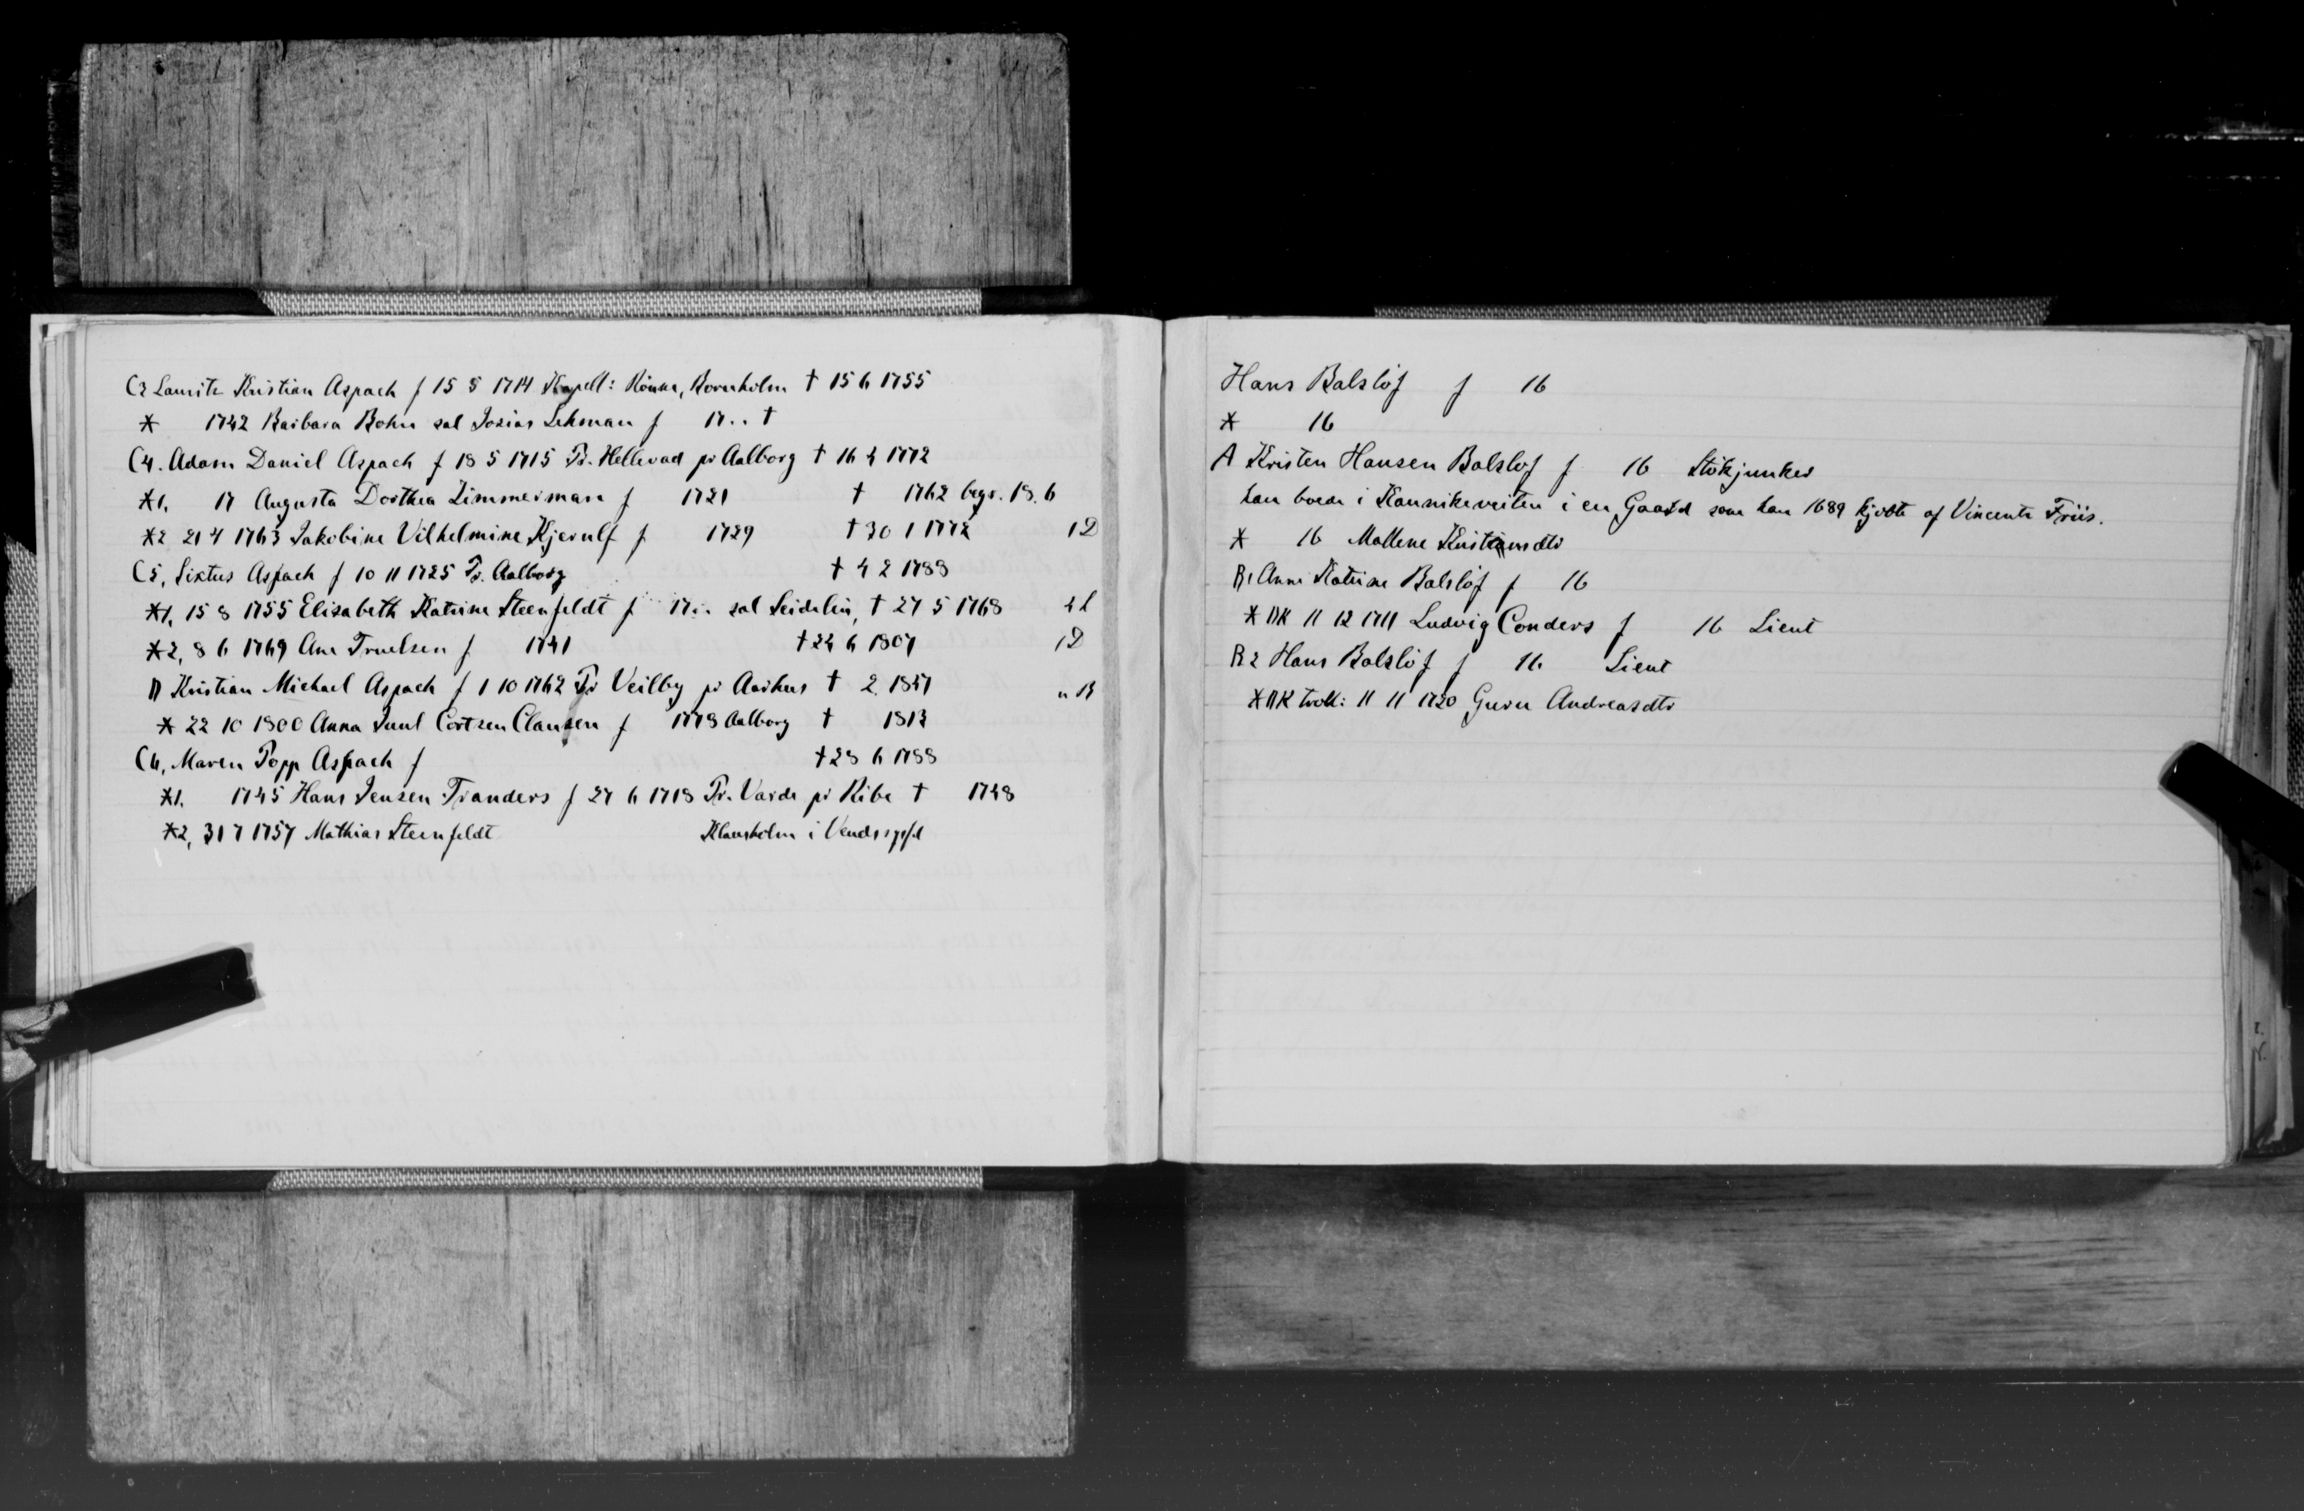 C3 Lauritz Kristian Aspach f 15 5 1714 Kapell: Rönne, Bornholm † 15 6 1755
* 1742 Barbara Bohn sal Josias Lehman f 17.. †
C4. Adam Daniel Aspach f 18 5 1715 Pr. Hellevad pr Aalborg † 16 4 1772
*1. 17 Augusta Dorthea Zimmerman f 1721 † 1762 begr. 18. 6
*2 21 4 1763 Jakobine Vilhelmine Kjerulf f 1729 † 30 1 1772 1D
C5, Sixtus Aspach f 10 11 1725 Pr. Aalborg † 4 2 1788
*1, 15 8 1755 Elisabeth Katrine Steenfeldt f 17.. sal Seidelin, † 27 5 1768
*2, 8 6 1769 Ane Truelsen f 1741 † 24 6 1807 1D
D Kristian Michael Aspach f 1 10 1762 Pr Veilby pr Aarhus † 2. 1847 u B
* 22 10 1800 Anna Juul Cortzen Clausen f 1778 Aalborg † 1813
C6, Maren Popp Aspach f † 28 6 1788
*1. 1745 Hans Jensen Tranders f 27 6 1718 Pr. Varde pr Ribe † 1748
*2, 31 7 1757 Mathias Steenfeldt Klausholm i Vendsyssel
Hans Balslöf f 16
* 16
A Kristen Hansen Balslof f 16 Stökjunker
han boede i Kannikeveiten i en Gaard som han 1689 kjöbte af Vincentz Friis.
* 16 Mallene Kristensdtr
B1 Anne Katrine Balslöf f 16
* DK 11 12 1711 Ludvig Conders f 16 Lieut
B2 Hans Balslöf f 16 Lieut
* DK trol: 11 11 1720 Guru Andreasdtr